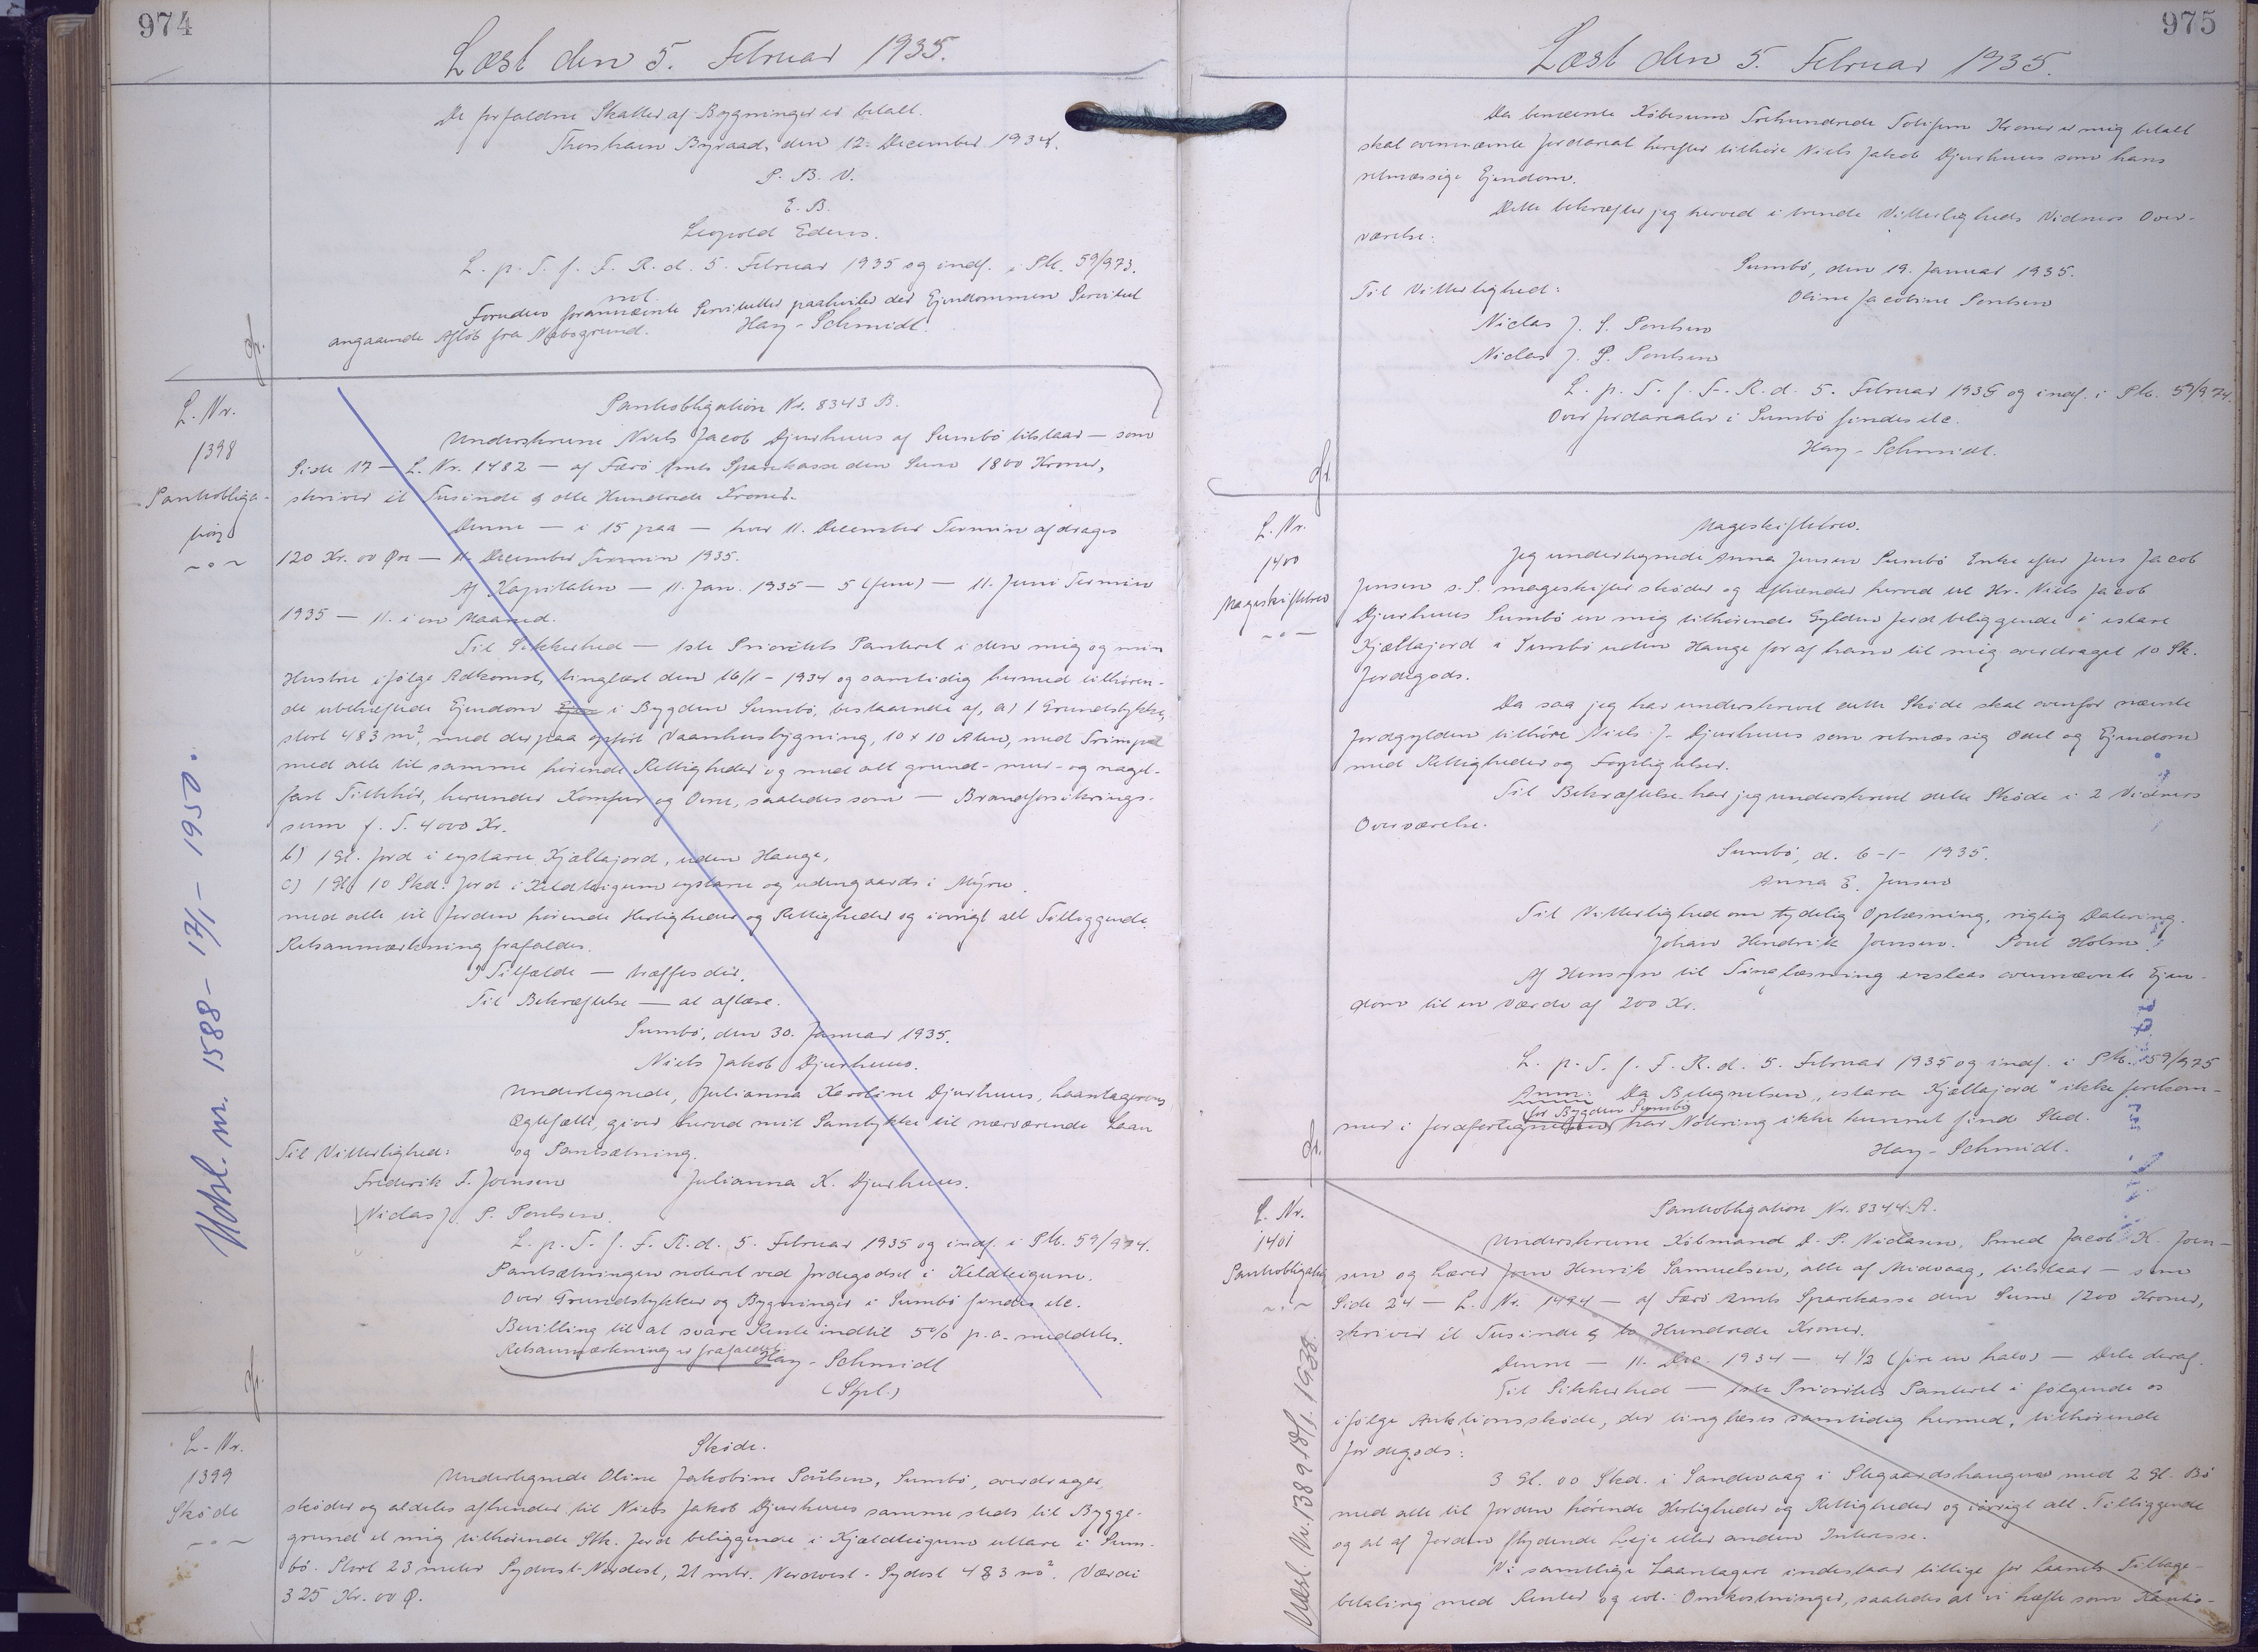 974
Læst den 5. Februar 1935.
De forfaldne Skatter af Bygninger er betalt.
Thorshavn Byraad, den 12. December 1934.
P. B. V.
E. B.
Leopold Edens.
L. p. T. f. F. R. d. 5. Februar 1935 og indf. i Pb. 59/973.
Foruden forannævnte Servitutter paahviler der Ejendommen Servitut
angaaende Afløb fra Nabogrund. Hay-Schmidt.
L. Nr.
1398
Pantobliga-
tion
~o~
Pantobligation Nr. 8343 B.
Underskrevne Niels Jacob Djurhuus af Sumbø tilstaar — som
Side 17 — L. Nr. 1482 — af Færø Amts Sparekasse den Sum 1800 Kroner,
skriver et Tusinde & otte Hundrede Kroner.
Denne — i 15 paa — hver 11. December Termin afdrages
120 Kr. 00 Øre — 11. December Termin 1935.
Af Kapitalen — 11. Jan. 1935 — 5 (fem) — 11. Juni Termin
1935 — 11. i en Maaned.
Til Sikkerhed — 1ste Prioritets Panteret i den mig og min
Hustru ifølge Adkomst, tinglæst den 16/1 - 1934 og samtidig hermed tilhøren-
de ubehæftede Ejendom i Bygden Sumbø, bestaaende af, a) 1 Grundstykke,
stort 483 m², med derpaa opført Vaanhusbygning, 10 x 10 Alen, med
med alle til samme hørende Rettigheder og med alt grund- mur- og nagel-
fast Tilbehør, herunder Komfur og Ovne, saaledes som — Brandforsikrings-
sum f. T. 4000 Kr.
b) 1 Gl. Jord i eystare Kjællajord, uden Hauge,
c) 1 Gl. 10 Skd. Jord i Keldteigum eystare og udengaards i Mýrn.
med alle til Jorden hørende Herligheder og Rettigheder og iøvrigt alt Tilliggende.
Retsanmærkning frafaldes.
I Tilfælde — træffes der.
Til Bekræftelse — at aflæse.
Sumbø, den 30. Januar 1935.
Niels Jakob Djurhuus.
Undertegnede, Julianna Karoline Djurhuus, Laantagerens
Ægtefælle, giver herved mit Samtykke til nærværende Laan
Til Vitterlighed: og Pantsætning.
Frederik F. Joensen Julianna K. Djurhuus.
Niclas J. P. Poulsen.
L. p. T. f. F. R. d. 5. Februar 1935 og indf. i Pb. 59/974.
Pantsætningen noteret ved Jordegodset i Keldteigum.
Over Grundstykker og Bygninger i Sumbø findes etc.
Bevilling til at svare Rente indtil 5% p. a. meddeles.
Retsanmærkning er frafaldet. Hay-Schmidt
(Stpl.)
Udsl. nr. 1588 - 17/1 - 1950.
L. Nr.
1399
Skøde
~o~
Skøde.
Undertegnede Oline Jakobine Poulsen, Sumbø, overdrager,
skøder og aldeles afhender til Niels Jakob Djurhuus samme steds til Bygge-
grund et mig tilhørende Stk. Jord beliggende i Kjældteigum uttare i Sum-
bø. Stort 23 meter Sydvest-Nordost, 21 mtr. Nordvest-Sydost 483 m². Værdi
325 Kr. 00 Ø.
975
Læst den 5. Februar 1935.
Da benævnte Købesum Trehundrede Kroner er mig betalt
skal ovennævnte Jordareal herefter tilhøre Niels Jakob Djurhuus som hans
retmæssige Ejendom.
Dette bekræfter jeg herved i tvende Vitterligheds Vidners Over-
værelse.
Sumbø, den 19. Januar 1935.
Til Vitterlighed: Oline Jacobine Poulsen
Niclas J. S. Poulsen
Niclas J. P. Poulsen
L. p. T. f. F. R. d. 5. Februar 1935 og indf. i Pb. 59/974.
Over Jordarealer i Sumbø findes etc.
Hay-Schmidt.
L. Nr.
1400
Mageskiftebrev
~o~
Mageskiftebrev.
Jeg undertegnede Anna Jensen Sumbø Enke efter Jens Jacob
Jensen s. S. mageskifter skøder og afhænder herved til Hr. Niels Jacob
Djurhuus Sumbø en mig tilhørende Gylden Jord beliggende i estare
Kjællajord i Sumbø uden Hauge for af ham til mig overdraget 10 Sk.
Jordegods.
Da saa jeg har underskrevet dette Skøde skal ovenfor nævnte
Jordgylden tilhøre Niels J. Djurhuus som retmæssig Odel og Ejendom
med Rettigheder og Forpligtelser.
Til Bekræftelse har jeg underskrevet dette Skøde i 2 Vidners
Overværelse.
Sumbø, d. 6-1- 1935.
Anna E. Jensen
Til Vitterlighed om tydelig Oplæsning, rigtig Datering.
Johan Hendrik Joensen. Poul Holm
Af Hensyn til Tinglæsning ansláas ovennævnte Ejen-
dom til en Værdi af 200 Kr.
L. p. T. f. F. R. d. 5. Februar 1935 og indf. i Pb. 59/975
Anm: Da Betegnelsen „estara Kjællajord" ikke forekom-
for Bygden Sumbø
mer i Jordfortegnelsen har Notering ikke kunnet find Sted.
Hay-Schmidt.
L. Nr.
1401
Pantobligation
~o~
Pantobligation Nr. 8344 A.
Underskrevne Købmand D. P. Niclasen, Smed Jacob K. Joen-
sen og Lærer Henrik Samuelsen, alle af Midvaag, tilstaar — som
Side 24 — L. Nr. 1494 — af Færø Amts Sparekasse den Sum 1200 Kroner,
skriver ét Tusinde & to Hundrede Kroner.
Denne — 11. Dec. 1934 — 4 1/2 (fire en halv) — Dele deraf.
Til Sikkerhed — 1ste Prioritets Panteret i følgende os
ifølge Auktionsskøde, der tinglæses samtidig hermed, tilhørende
Jordegods:
3 Gl. 00 Skd. i Sandevaag i Stegaardshaugen med 2 Gl. Bø
med alle til Jorden hørende Herligheder og Rettigheder og iøvrigt alt Tilliggende
og at af Jorden flydende Leje eller anden Interesse.
Vi samtlige Laantagere indestaar tillige for Laanets Tilbage-
betaling med Renter og evt. Omkostninger, saaledes at vi hæfte som Kautio-
Udsl. Nr. 1389 18/1. 1938.